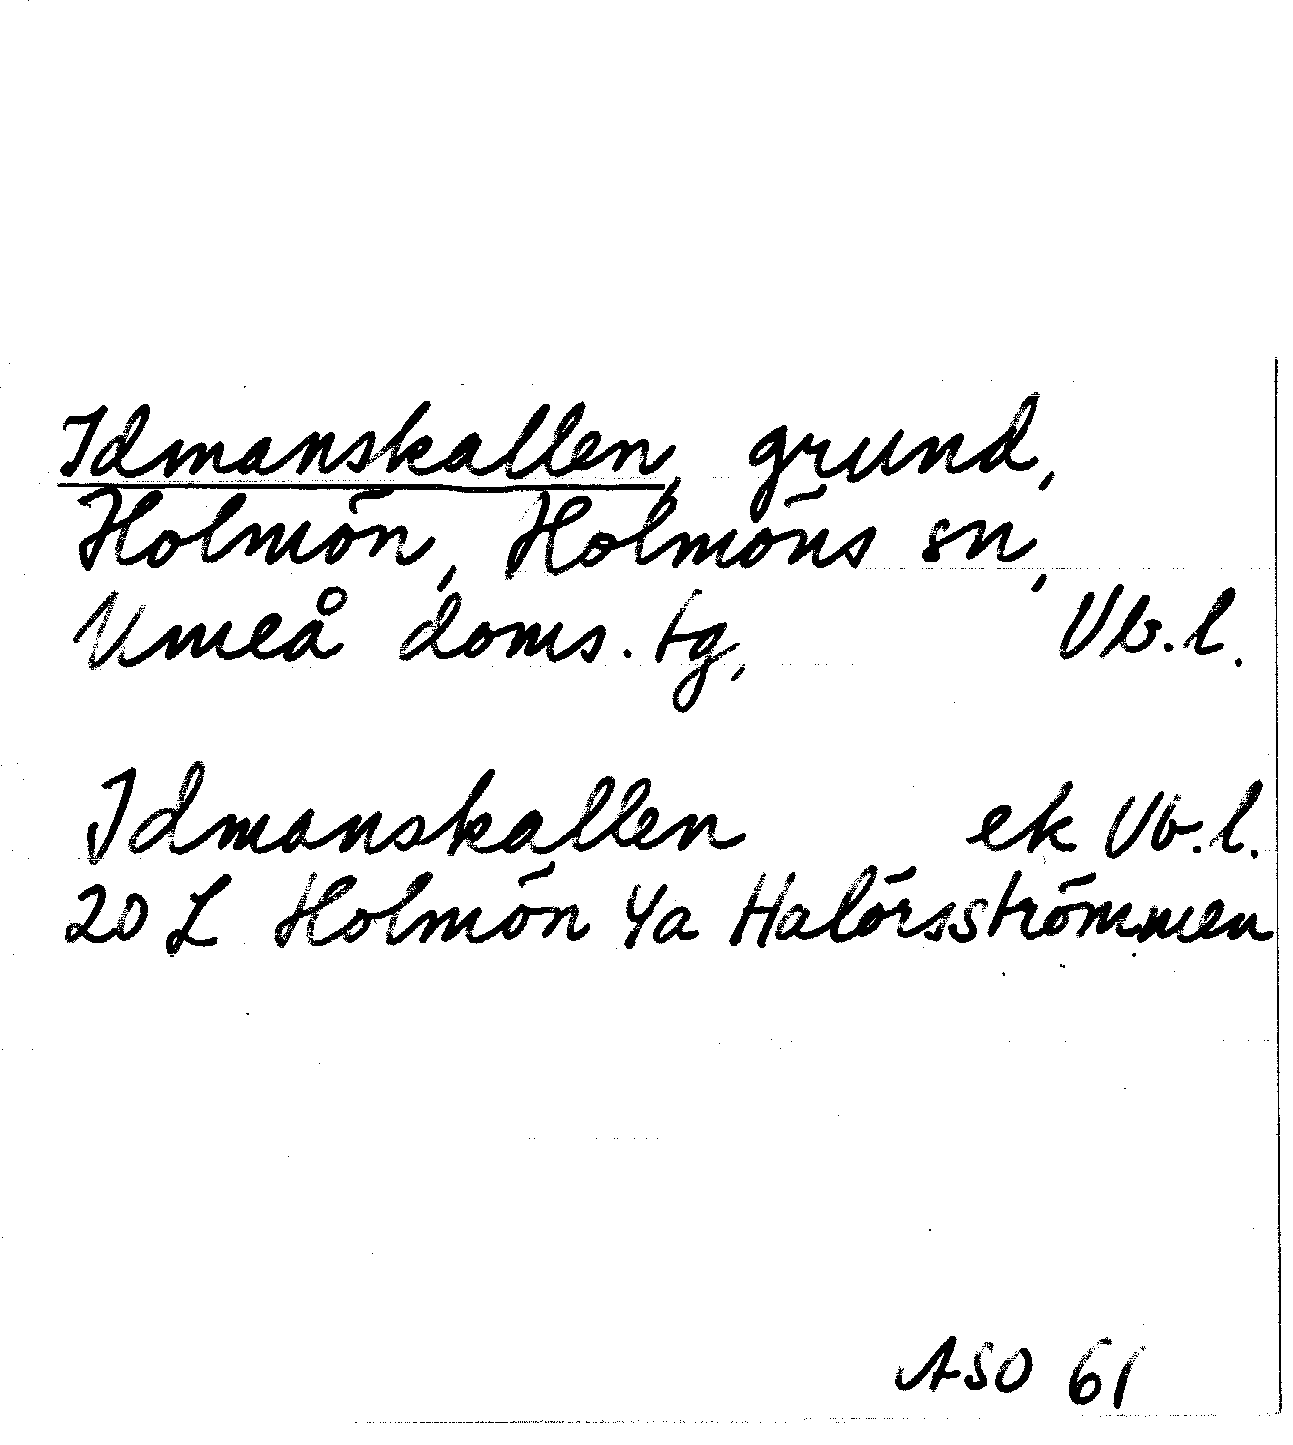 Idmanskallen, grund,
Holmön, Holmöns sn,
Umeå doms. tg, Vb.l.
Idmanskallen ek Vb.l.
20 L Holmön 4a Halörsströmmen
ASO 61